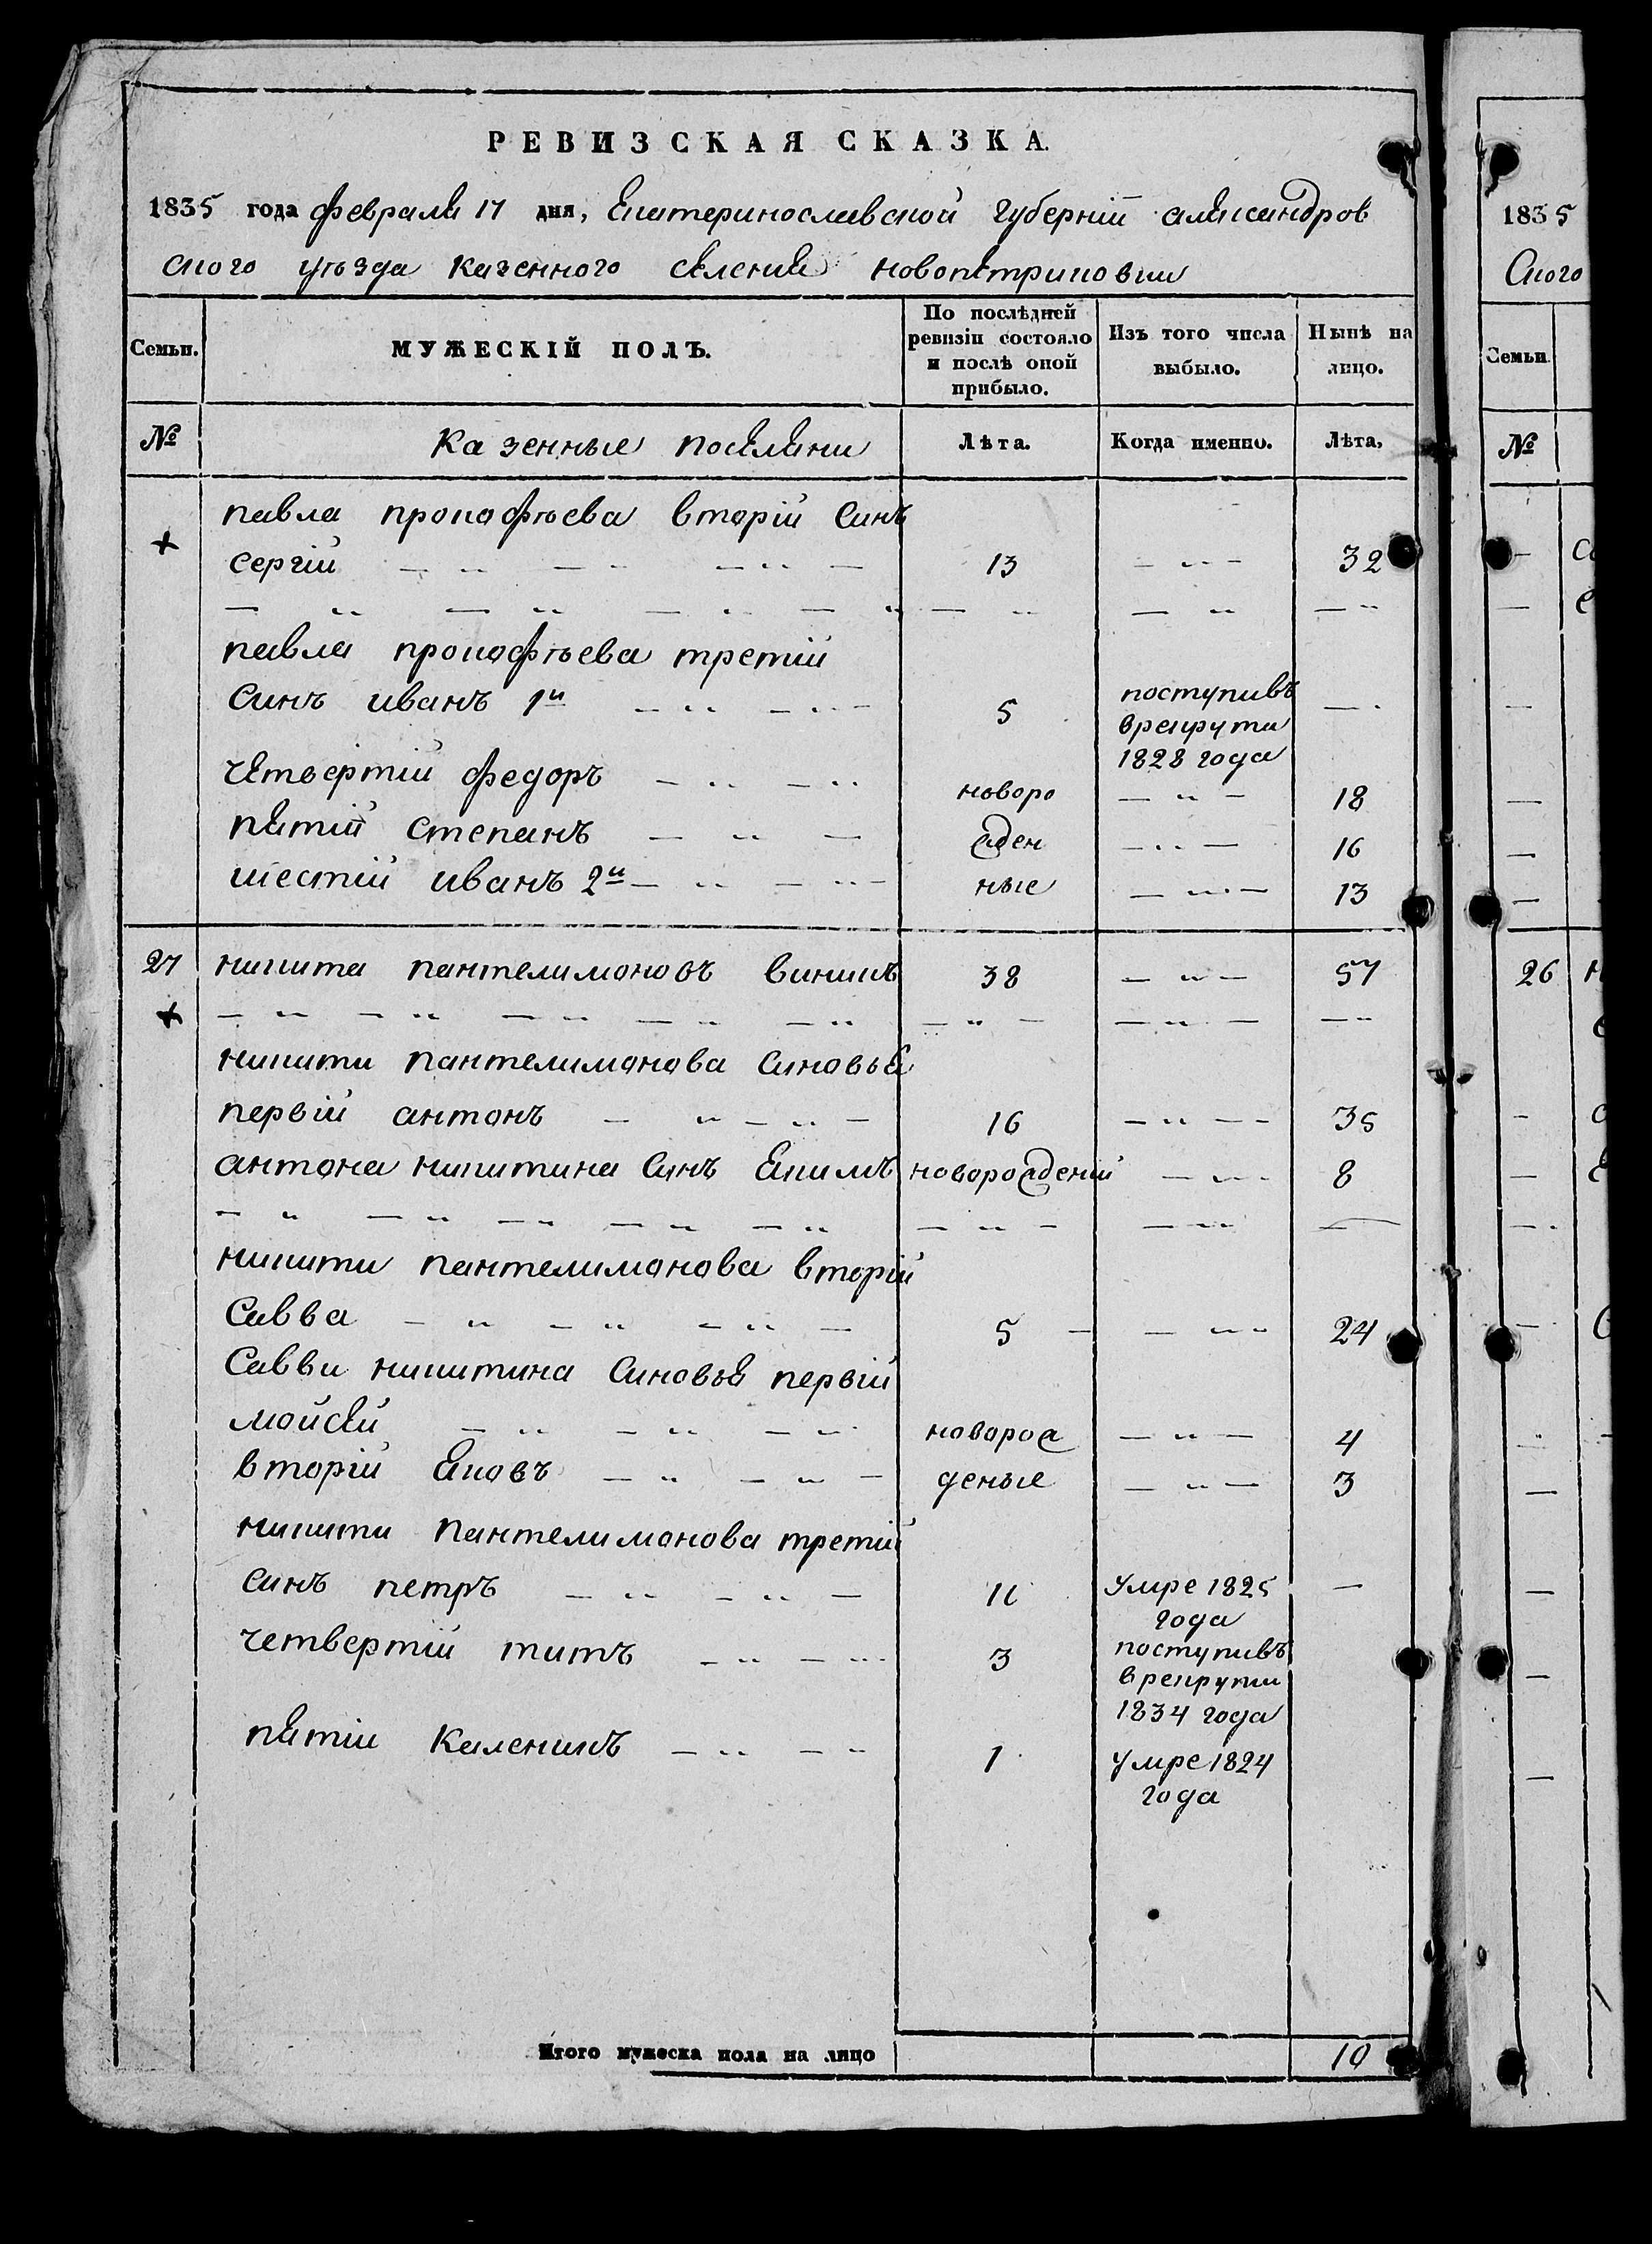 РЕВИЗСКАЯ СКАЗКА.
1835 года февраля 17 дня, Екатеринославской губерніи александров
ского уѣзда казенного селения новопетриковки
Семьи. МУЖЕСКІЙ ПОЛЪ. По послѣдней ревизіи состояло и послѣ оной прибыло. Изъ того числа выбыло. Нынѣ на лицо.
№ Казенные поселяни Лѣта. Когда именно. Лѣта,
павла прокофѣева вторій синъ
+ сергій 13 32
павла прокофѣева третій
синъ иванъ 1й 5 поступивъ
в рекрути
1828 года
четвертій федоръ новоро 18
пятій степанъ жден 16
шестій иванъ 2й ные 13
27 никита пантелимоновъ 38 57
+
никити пантелимонова синовья
первій антонъ 16 35
антона никитина синъ Якимъ новорожденій 8
никити пантелимонова вторій
Савва 5 24
Савви никитина Синовья первій
мойсей новорож 4
вторій Яковъ деные 3
никити пантелимонова третій
синъ петръ 11 умре 1825
года
четвертій титъ 3 поступивъ
в рекрути
1834 года
пятій Каленикъ 1 умре 1824
года
Итого мужеска пола на лицо 10
1835
Ского
Семьи.
№
26